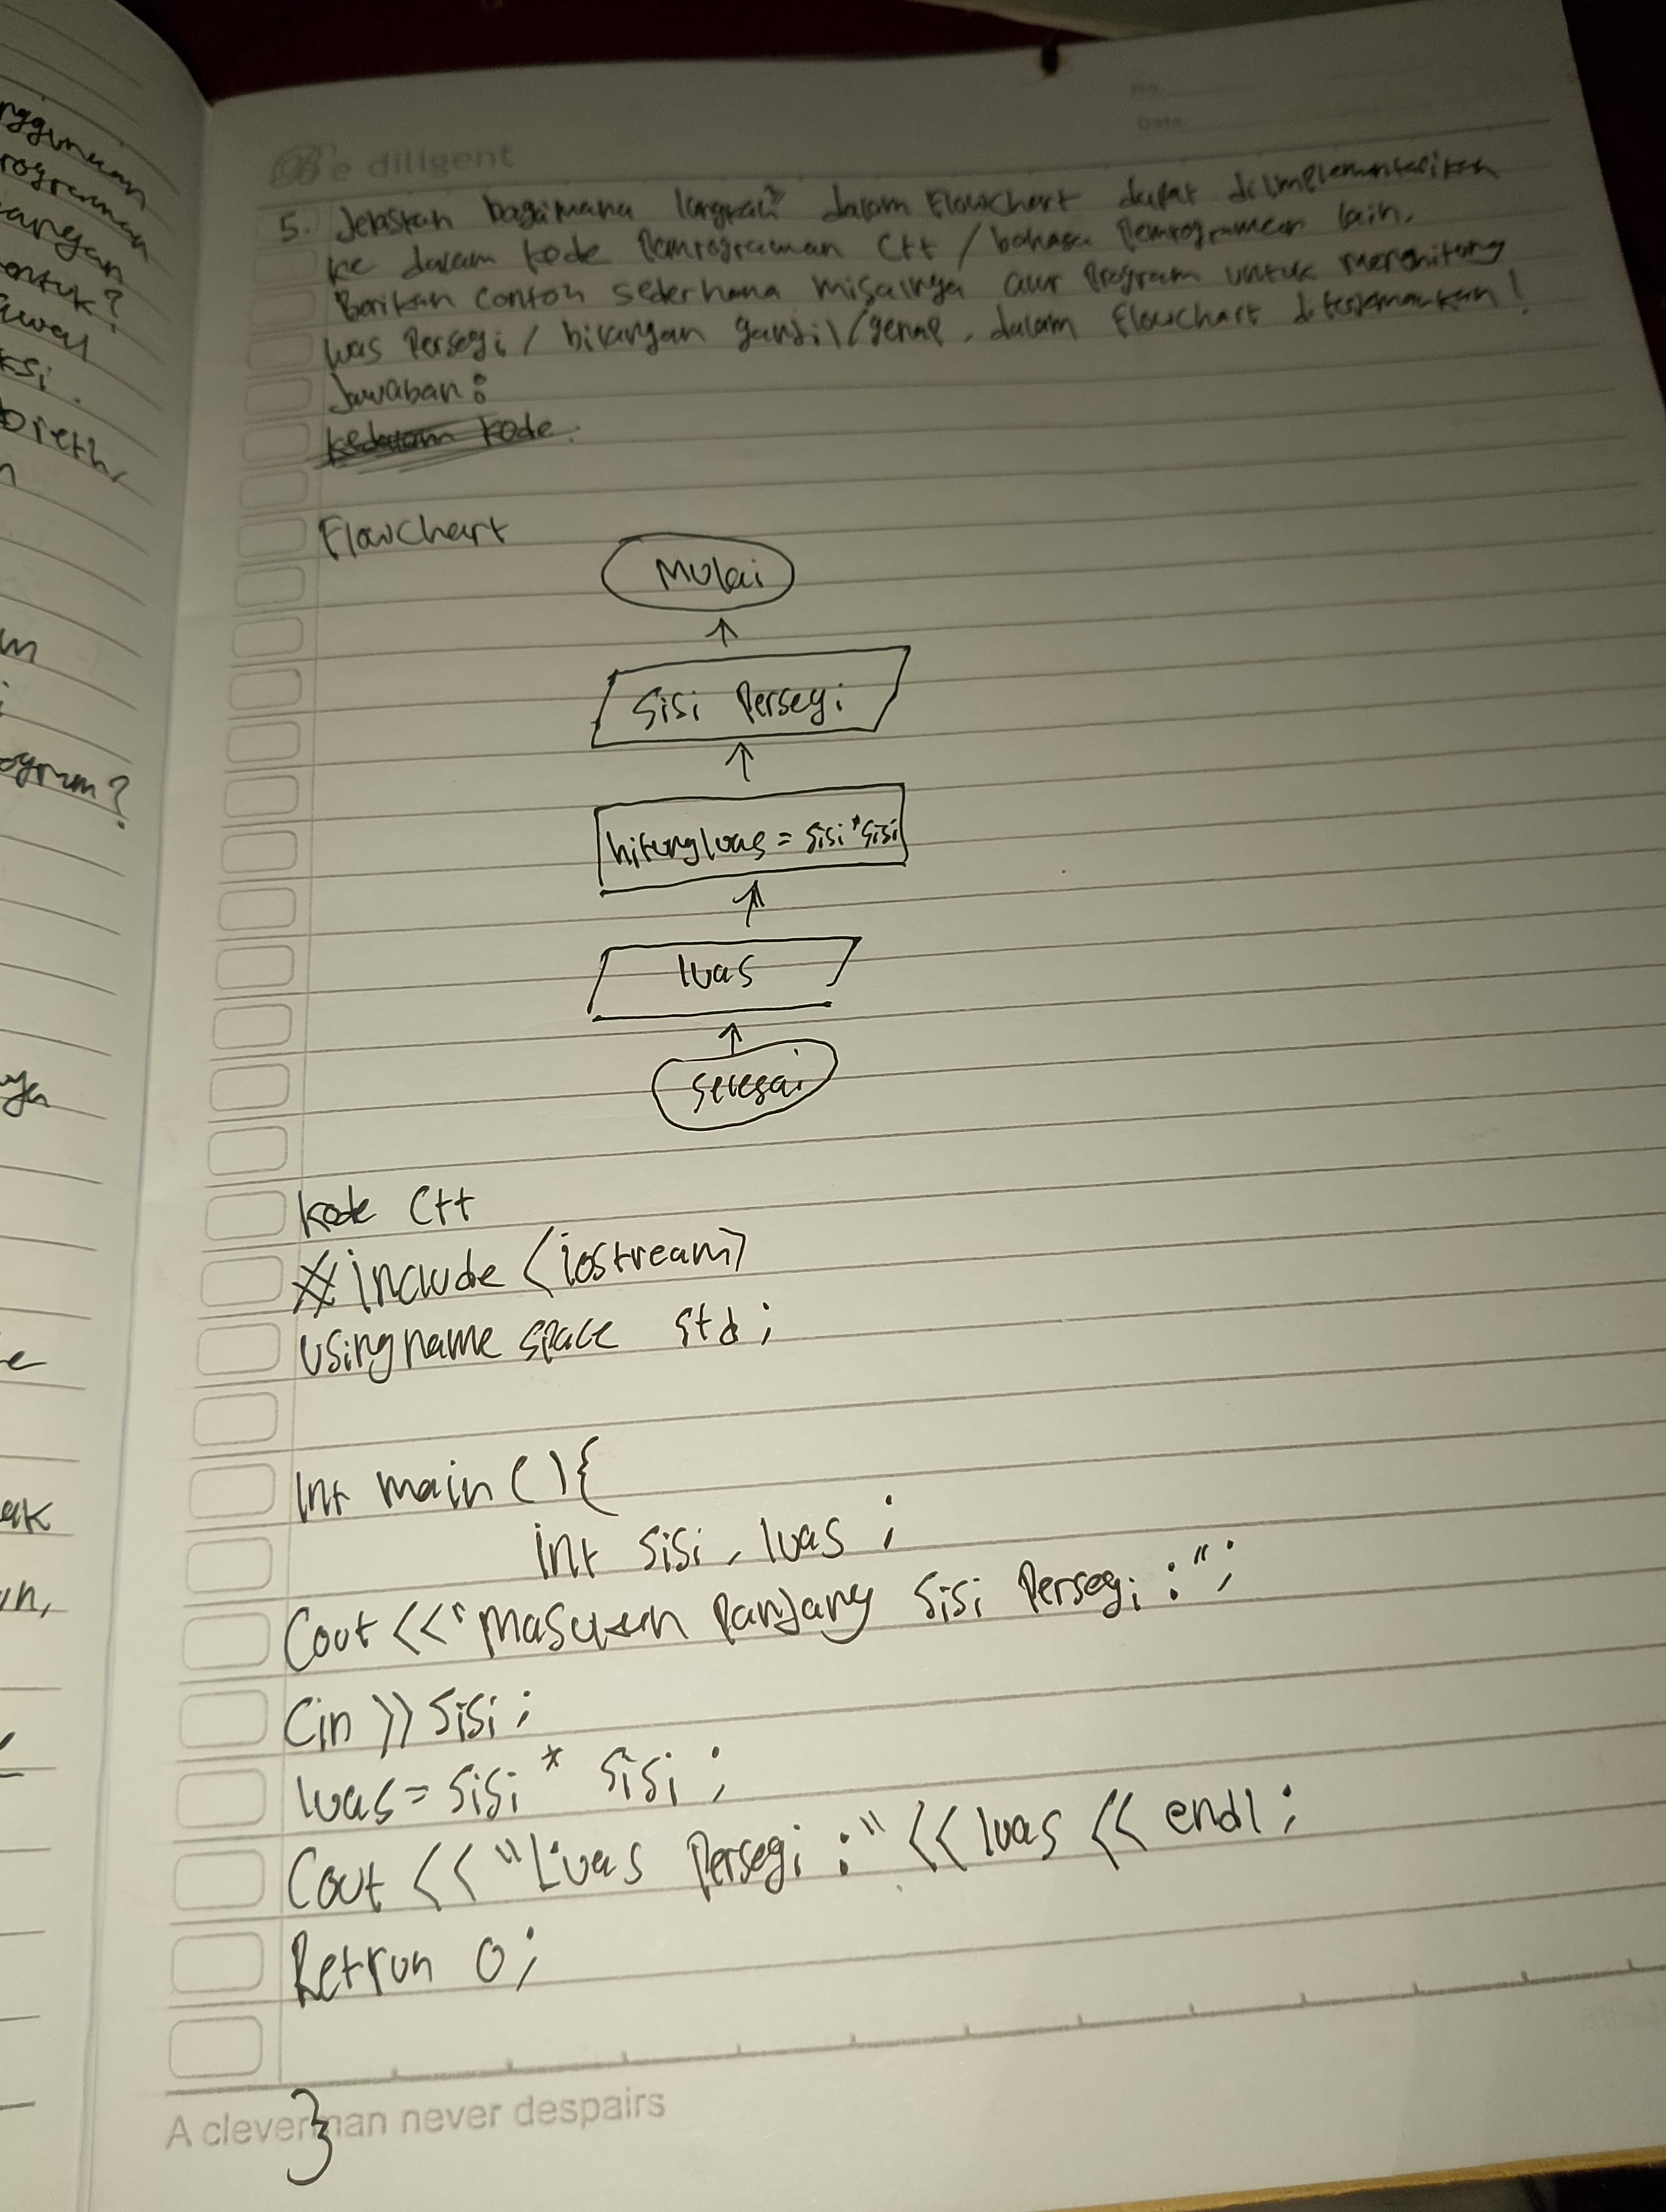 nggunaan
rograman
angan
entuk?
awal
ksi.
m
ogram?
ya
e
ak
un,
No.
Date.
Be diligent
5. Jelaskan bagaimana langkah² dalam Flowchart dapat diimplementasikan
ke dalam kode Pemrograman C++ / bahasa Pemrograman lain.
Berikan contoh sederhana misalnya alur Program untuk menghitung
luas Persegi / bilangan ganjil/genap, dalam Flowchart diterjemahkan!
Jawaban:
kedalam kode.
Flowchart
Mulai
Sisi Persegi
hitung luas = sisi * sisi
luas
Selesai
kode C++
#include <iostream>
using name space std;
Int main () {
int sisi, luas ;
Cout << "Masukan Panjang Sisi Persegi : ";
Cin >> Sisi ;
luas = Sisi * Sisi ;
Cout << "Luas Persegi : " << luas << endl ;
Retrun 0;
}
A cleverman never despairs